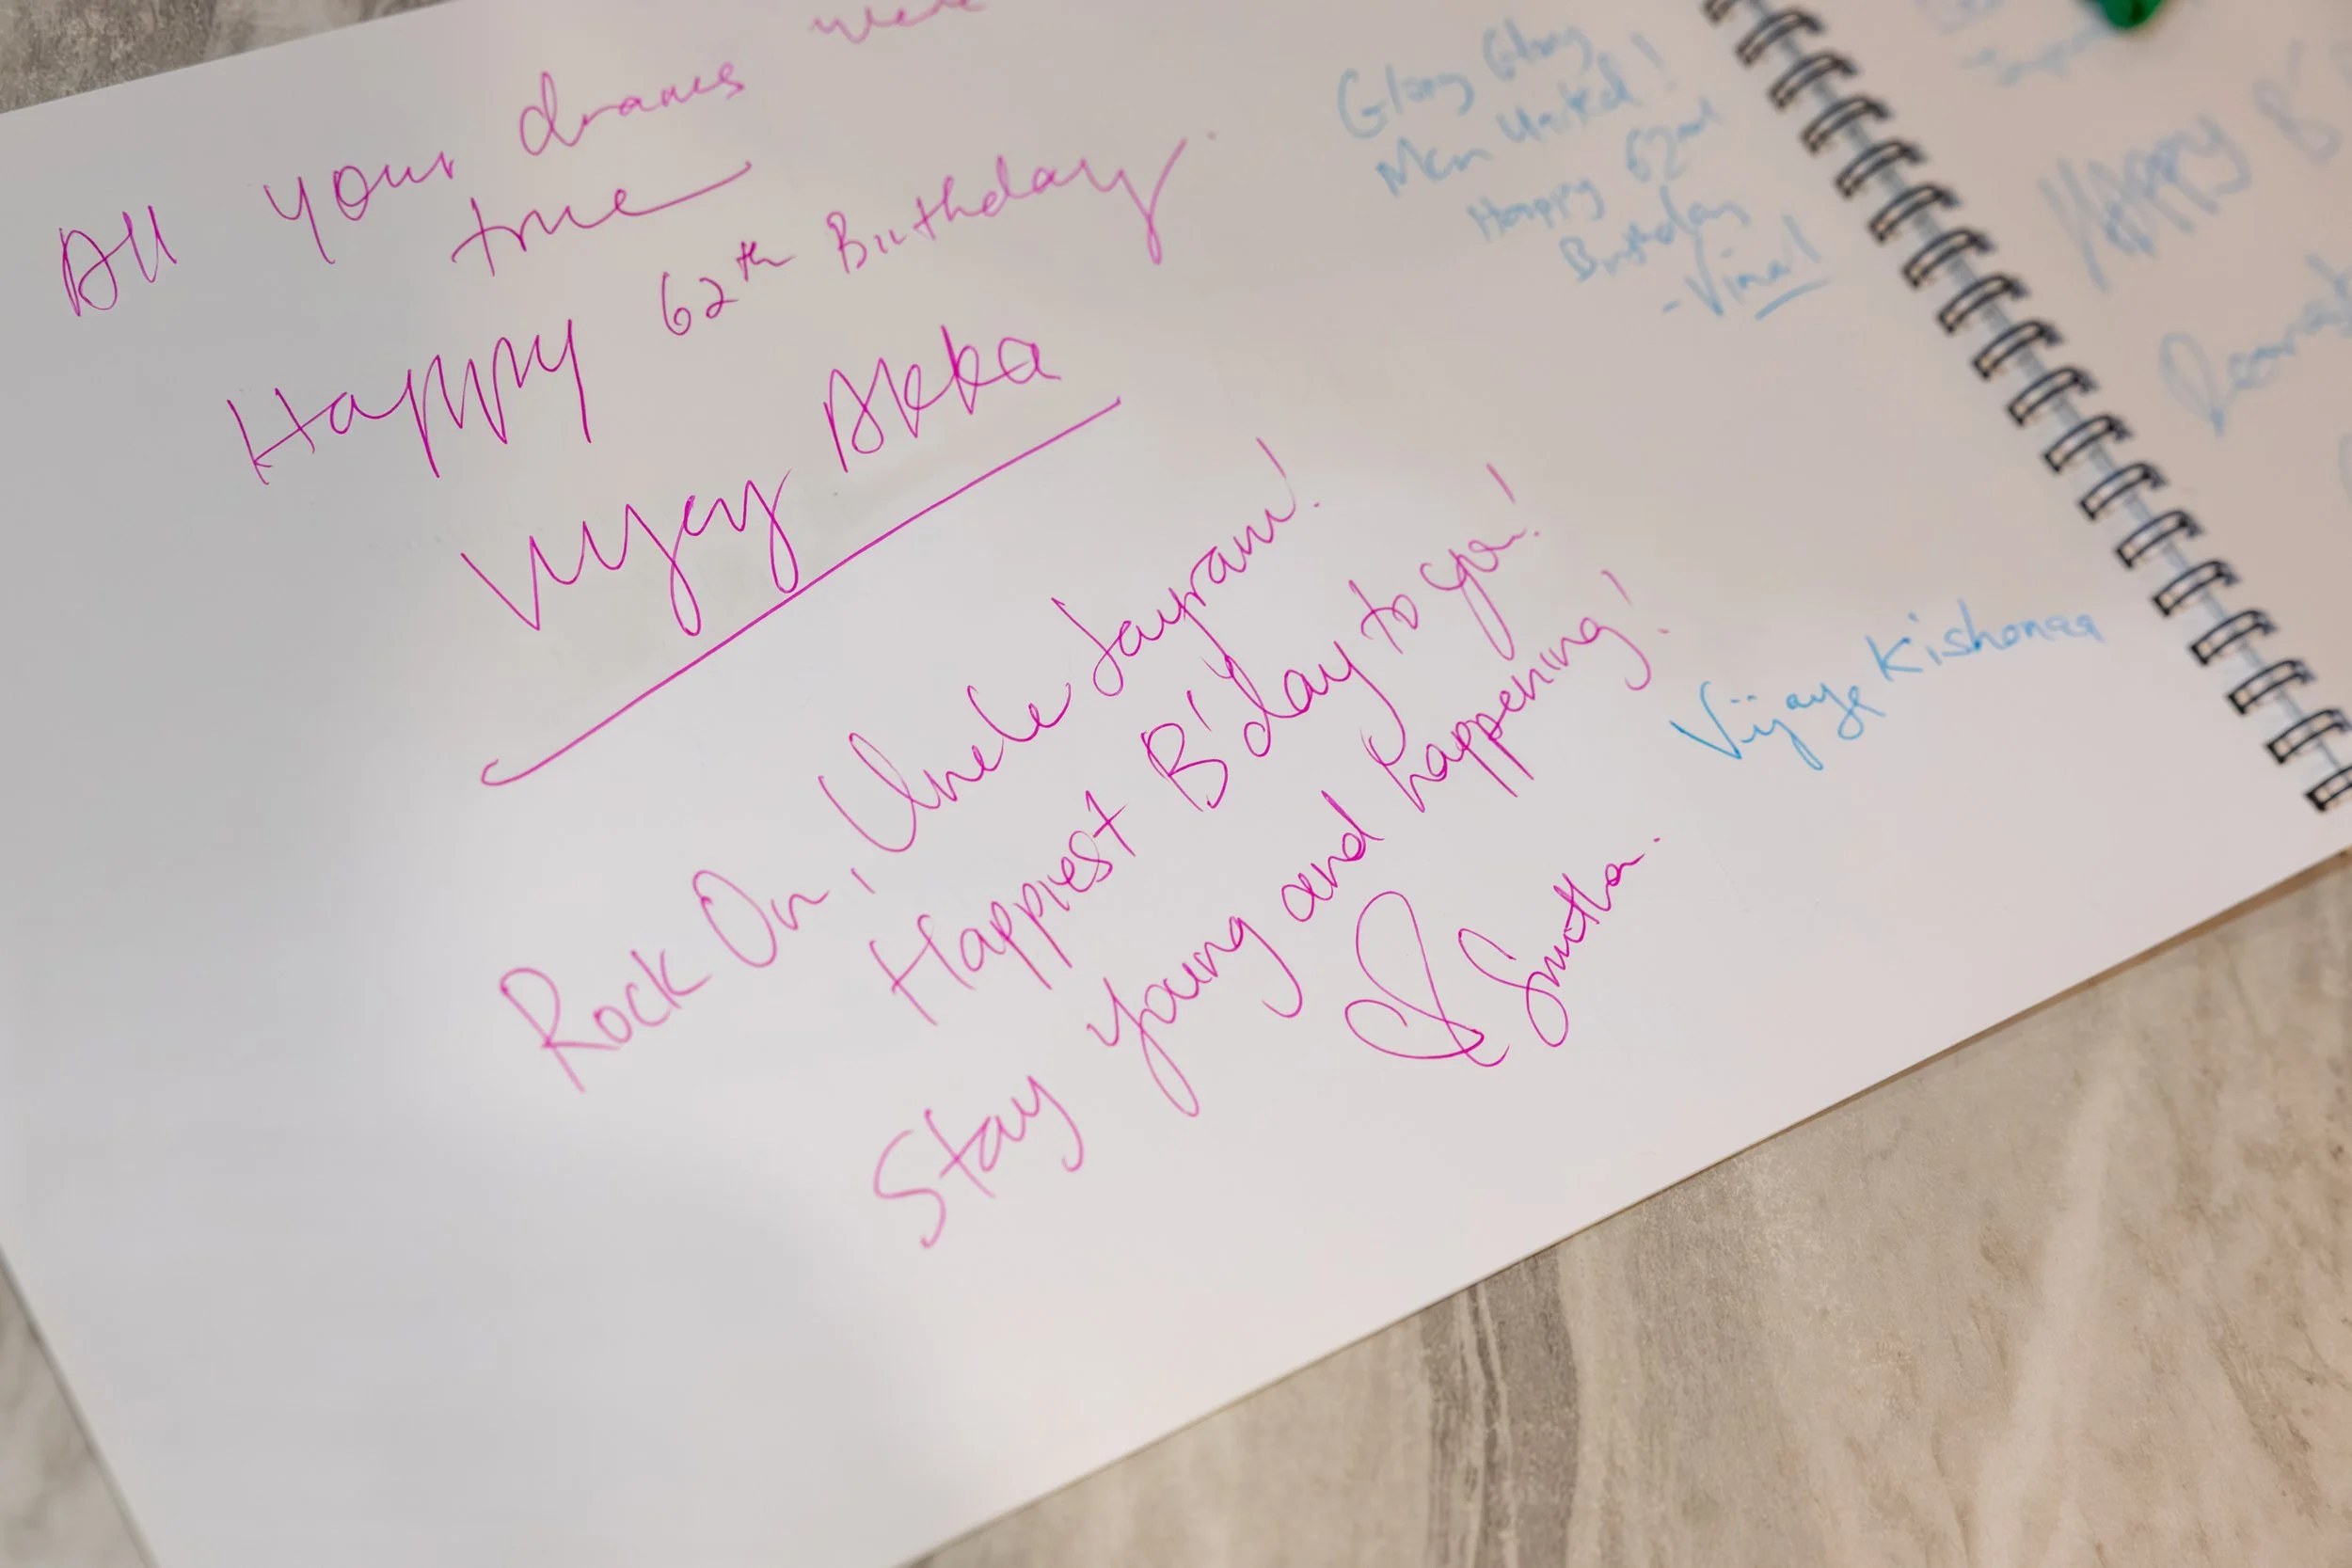 All your drames
true
Happy 62th Birthday.
Vijay Akka
Rock On, Uncle Jayram!
Happiest B'day to you!
Stay young and happening!
Smitha.
Glory Glory
Man United!
Happy 62nd
Birthday
- Vimal
Vijaya Kishonaa
Happy B'